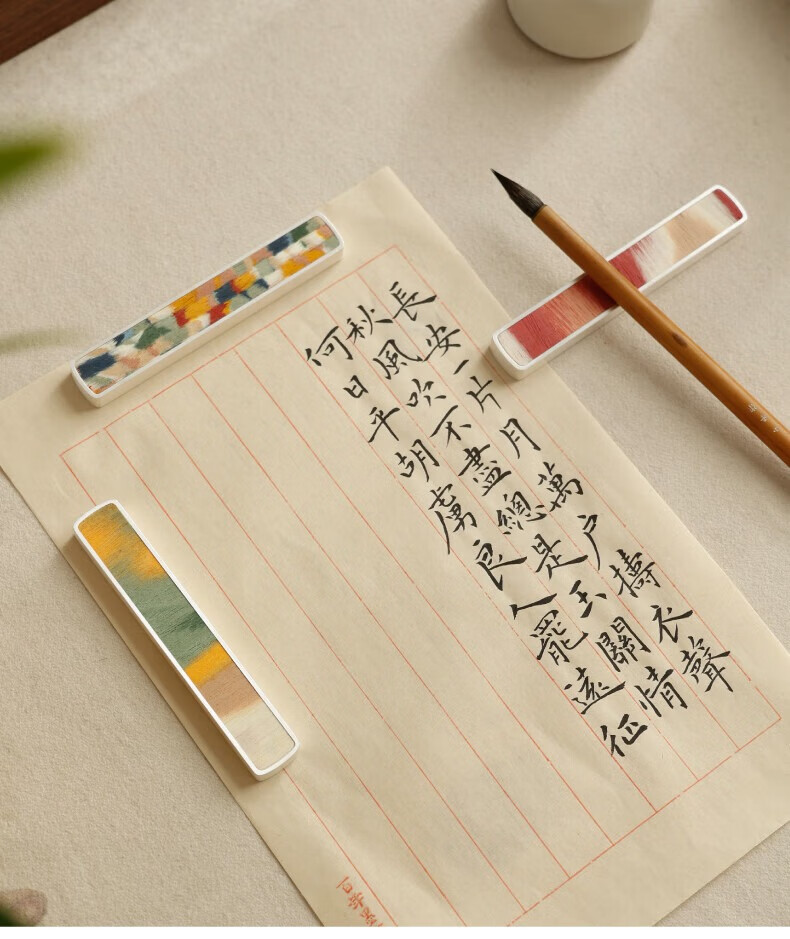 長安一片月萬户擣衣聲
秋風吹不盡總是玉關情
何日平胡虜良人罷遠征